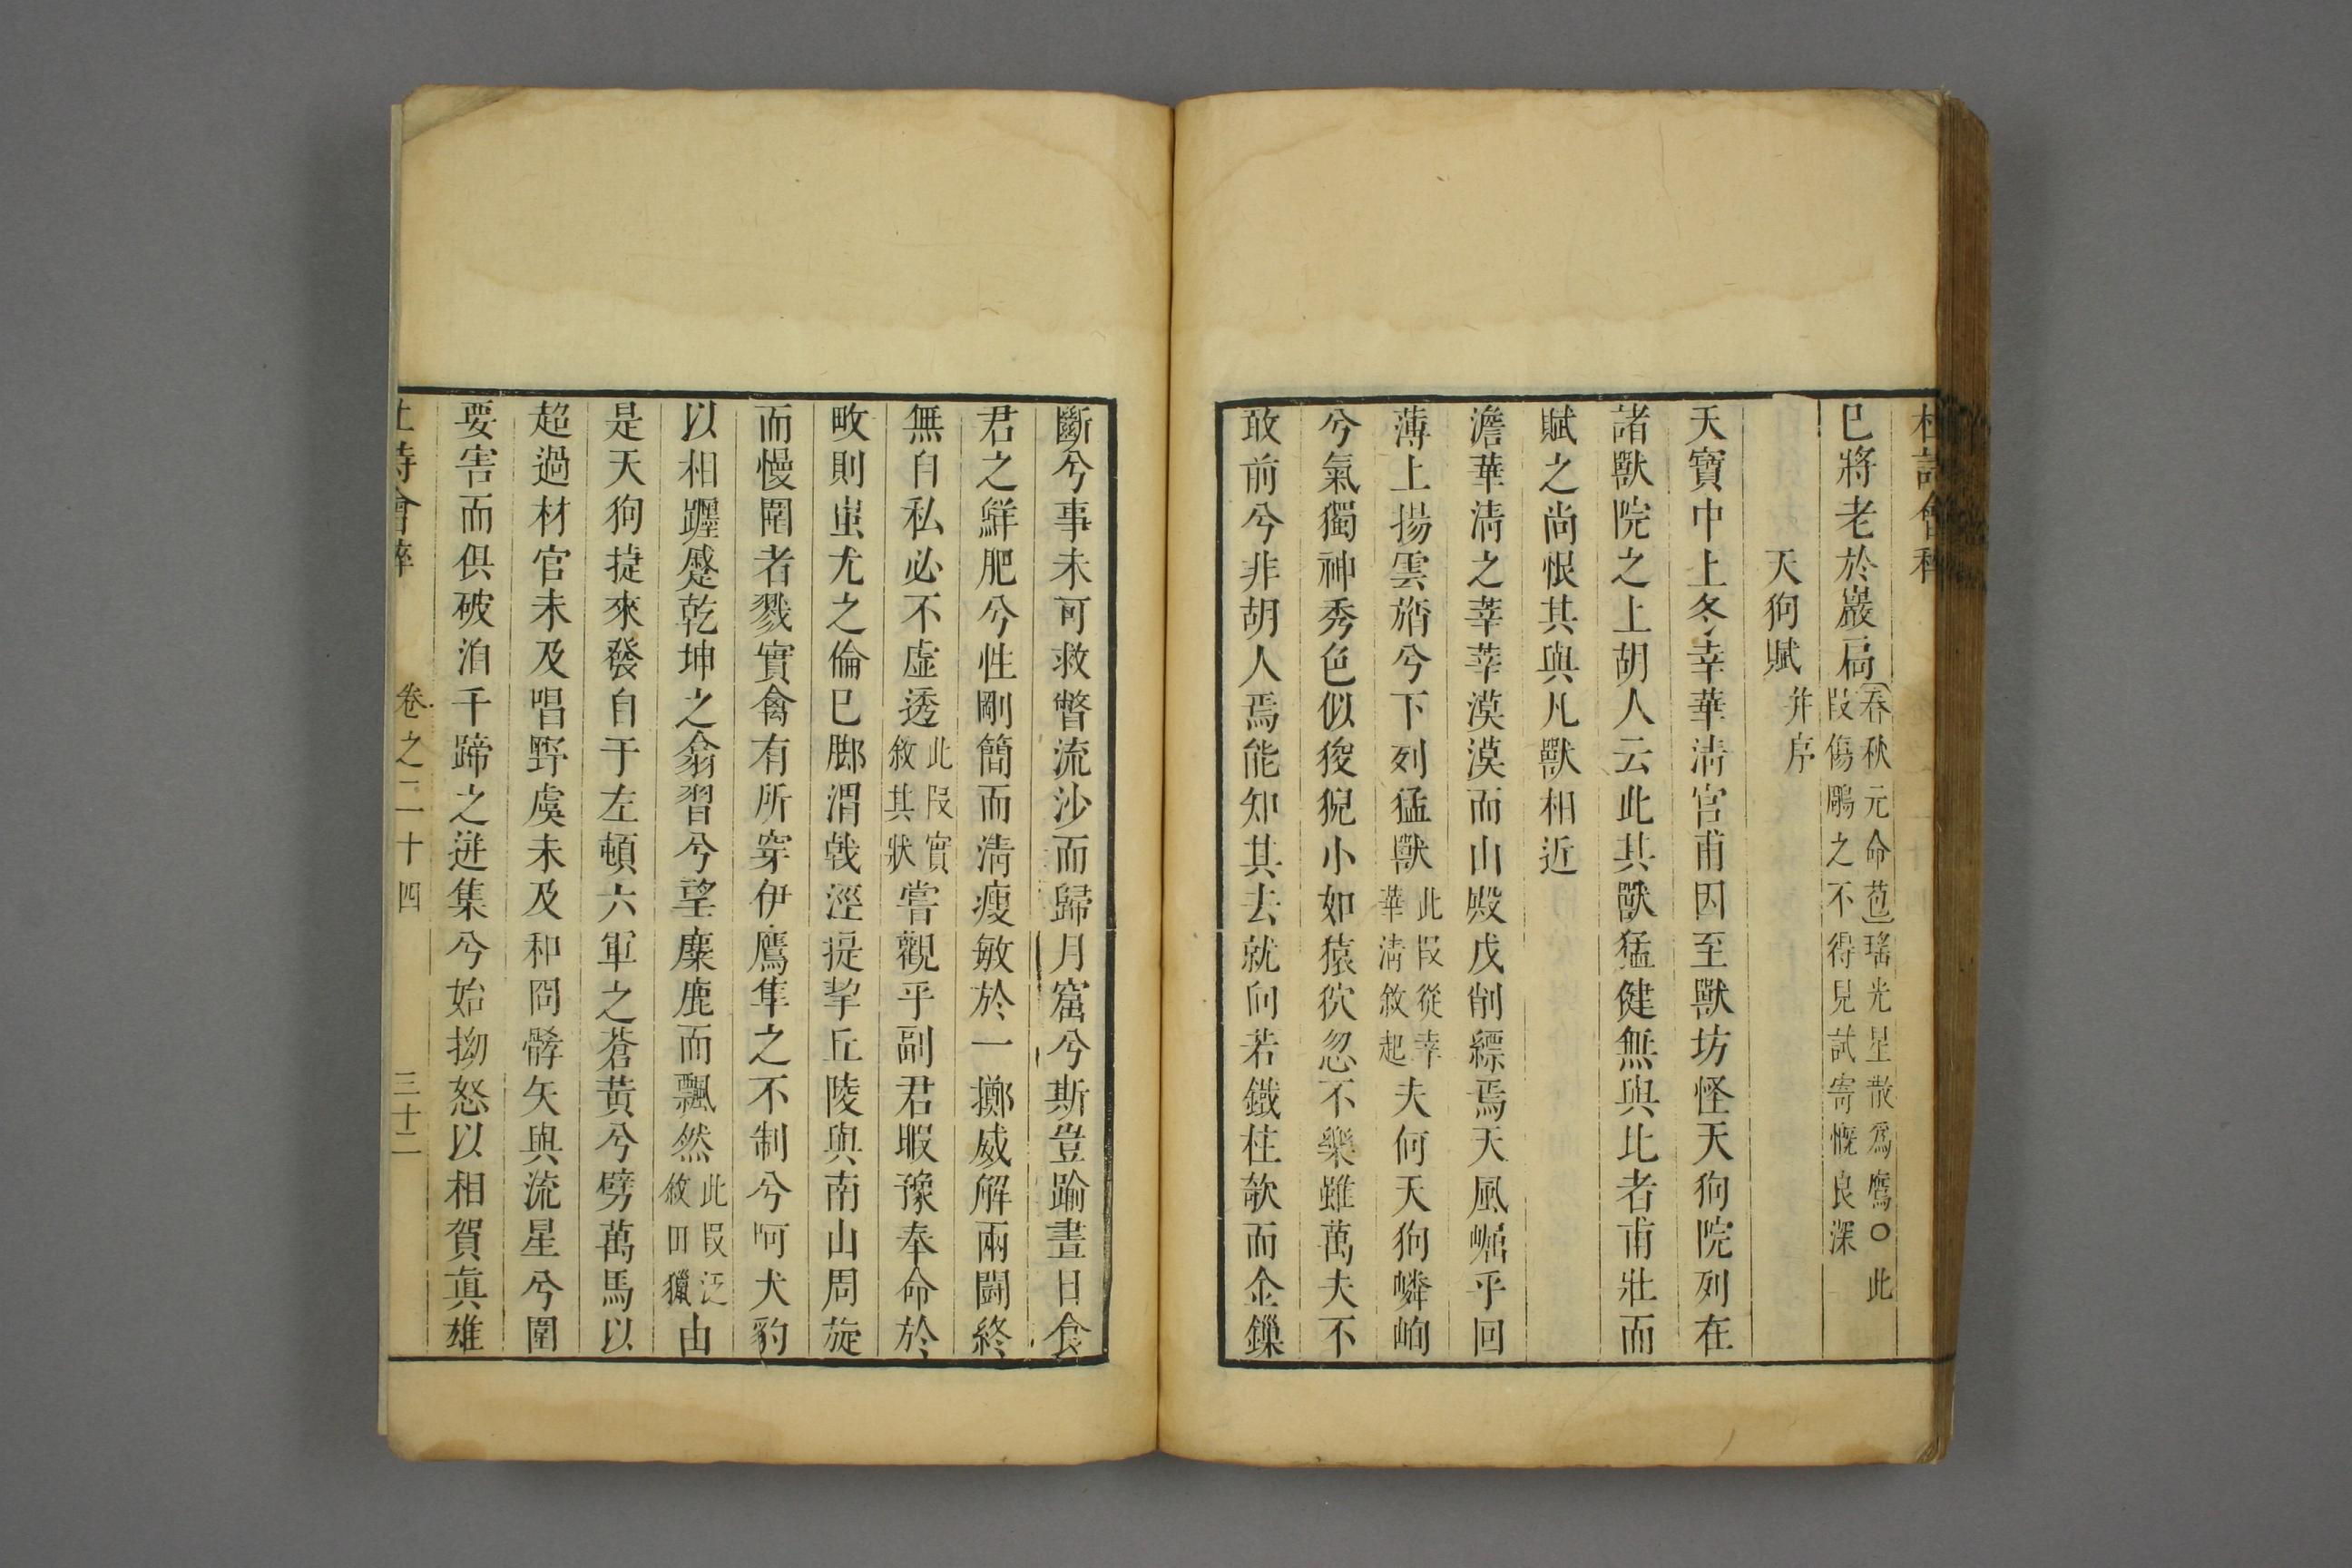 杜詩會稡
已將老於巖扃(春秋元命苞)瑤光星散為鷹○此
段傷鵰之不得見試寄慨良深
天狗賦 并序
天寶中上冬幸華清宮甫因至獸坊怪天狗院列在
諸獸院之上胡人云此其獸猛健無與比者甫壯而
賦之尚恨其與凡獸相近
澹華清之莘莘漠漠而山殿戌削縹焉天風崛乎回
薄上揚雲旓兮下列猛獸此段從幸華清敘起夫何天狗嶙峋
兮氣獨神秀色似狻猊小如猿狖忽不樂雖萬夫不
敢前兮非胡人焉能知其去就向若鐵柱欹而金鏁
斷兮事未可救瞥流沙而歸月窟兮斯豈踰晝日食
君之鮮肥兮性剛簡而清瘦敏於一擲威解兩鬪終
無自私必不虛透此段實敘其狀嘗觀乎副君暇豫奉命於
畋則蚩尤之倫已脚渭戟涇提挈丘陵與南山周旋
而慢圍者戮實禽有所穿伊鷹隼之不制兮呵犬豹
以相躔蹙乾坤之翕習兮望麋鹿而飄然此段泛敘田獵由
是天狗捷來發自于左頓六軍之蒼黃兮劈萬馬以
超過材官未及唱野虞未及和冏髇矢與流星兮圍
要害而俱破洎千蹄之迸集兮始拗怒以相賀真雄
杜詩會稡 卷之二十四 三十二